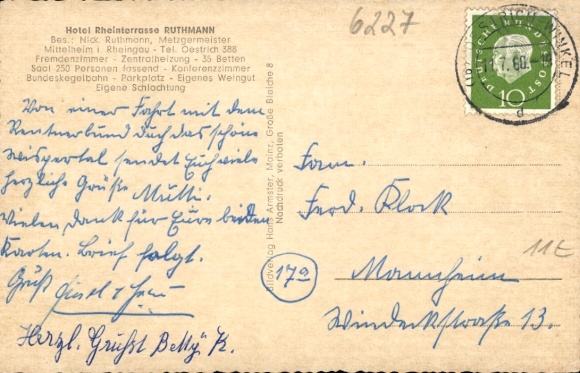 Hotel Rheinterrasse RUTHMANN
Bes.: Nick. Ruthmann, Metzgermeister
Mittelheim i. Rheingau - Tel. Oestrich 388
Fremdenzimmer - Zentralheizung - 35 Betten
Saal 250 Personen fassend - Konferenzzimmer
Bundeskegelbahn - Parkplatz - Eigenes Weingut
Eigene Schlachtung
Von einer Fahrt mit dem
Rentnerbund durch das schöne
Wispertal sendet Euch viele
herzliche Grüße Mutti.
Vielen Dank für Eure beiden
Karten. Brief folgt.
Gruß
Herzl. Grüßt Betty
Bildverlag Hans Armster, Mainz, Große Bleiche 8
Nachdruck verboten
6227
DEUTSCHE BUNDESPOST
10
WINKEL
.7.60.
d
Fam.
Ferd. Klock
17a
Mannheim
Windeckstraße 13.
11E